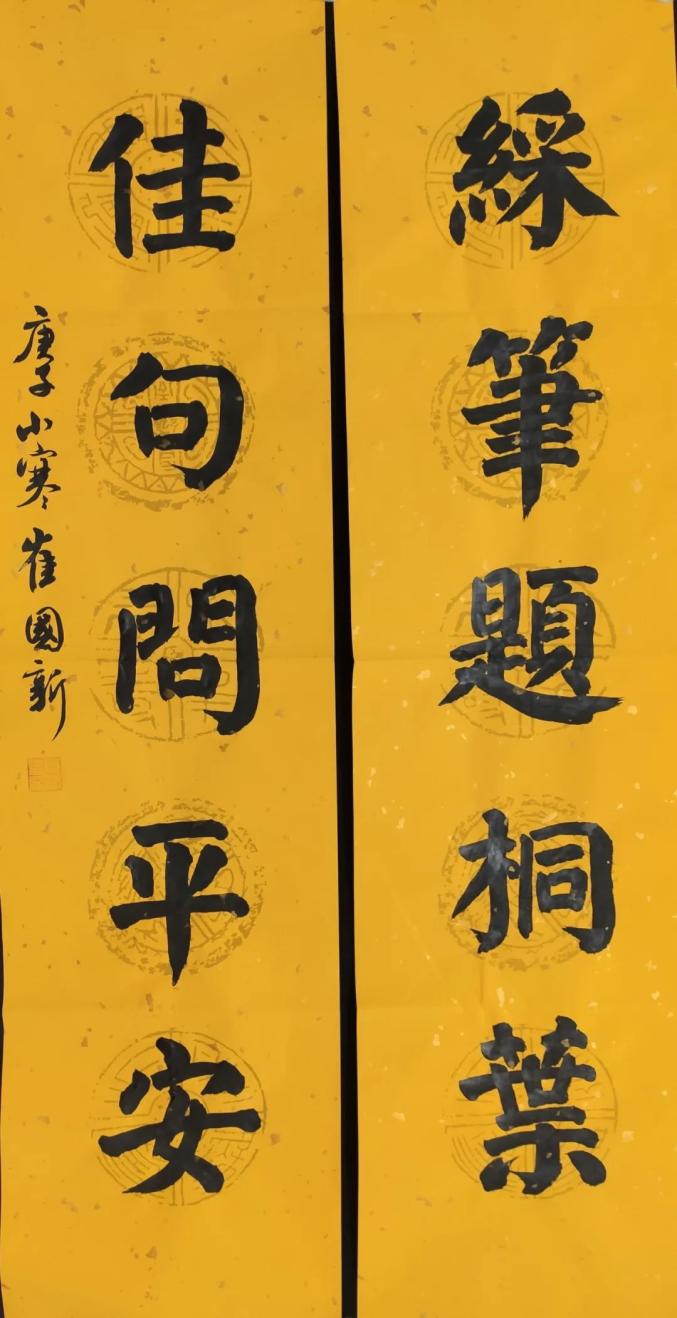 綵筆題桐葉
佳句問平安
庚子小寒崔國新